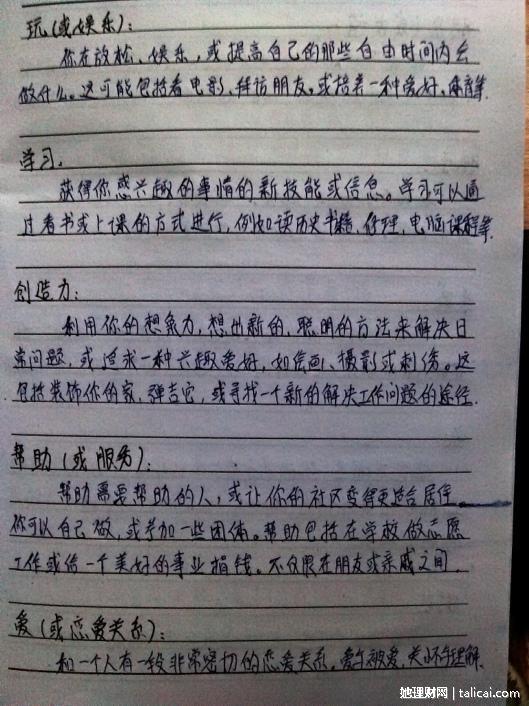 玩(或娱乐):
你在放松、娱乐,或提高自己的那些自由时间内会
做什么。这可能包括看电影,拜访朋友,或培养一种爱好,体育等.
学习.
获得你感兴趣的事情的新技能或信息。学习可以通
过看书或上课的方式进行,例如读历史书籍,修理,电脑课程等.
创造力:
利用你的想象力,想出新的,聪明的方法来解决日
常问题,或追求一种兴趣爱好,如绘画、摄影或刺绣。这
包括装饰你的家,弹吉它,或寻找一个新的解决工作问题的途径.
帮助(或服务):
帮助需要帮助的人,或让你的社区变得更适合居住.
你可以自己做,或参加一些团体。帮助包括在学校做志愿
工作或给一个美好的事业捐钱。不仅限在朋友或亲戚之间.
爱(或恋爱关系):
和一个人有一段非常密切的恋爱关系。爱与被爱,关怀与理解.
她理财网 | talicai.com